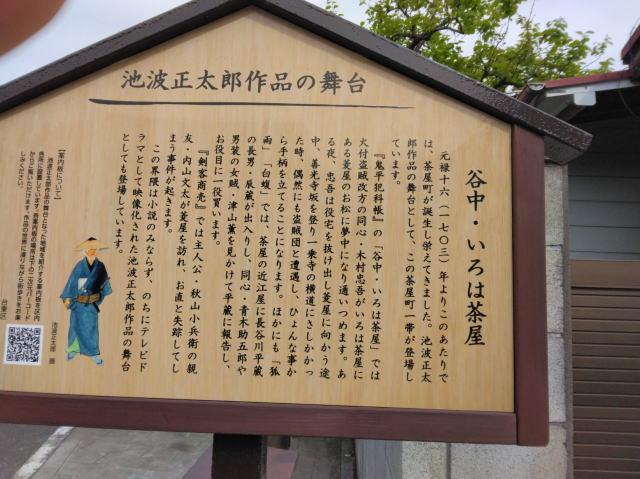 池波正太郎作品の舞台
谷中・いろは茶屋
元禄十六(一七〇三)年よりこのあたりで
は、茶屋町が誕生し栄えてきました。池波正太
郎作品の舞台として、この茶屋町一帯が登場し
ています。
『鬼平犯科帳』の「谷中・いろは茶屋」では
火付盗賊改方の同心・木村忠吾がいろは茶屋に
ある菱屋のお松に夢中になり通いつめます。あ
る夜、忠吾は役宅を抜け出し菱屋に向かう途
中、善光寺坂を登り一乗寺の横道にさしかかっ
た時、偶然にも盗賊団と遭遇し、ひょんな事か
ら手柄を立てることになります。ほかにも「狐
雨」「白蝮」では、茶屋の近江屋に長谷川平蔵
の長男・辰蔵が出入りし、同心・青木助五郎や
男装の女賊・津山薫を見かけて平蔵に報告し、
お役目に一役買います。
『剣客商売』では主人公・秋山小兵衛の親
友・内山文太が菱屋を訪れ、お直と失踪してし
まう事件が起きます。
この界隈は小説のみならず、のちにテレビド
ラマとして映像化された池波正太郎作品の舞台
としても登場しています。
【案内板について】
池波正太郎作品の舞台となった地域を紹介する案内板を区内
各所に設置しています。各案内板の場所は下の二次元バーコード
からご覧いただけます。作品の世界に浸りながら街歩きをお楽
しみください。
台東区
池波正太郎 画